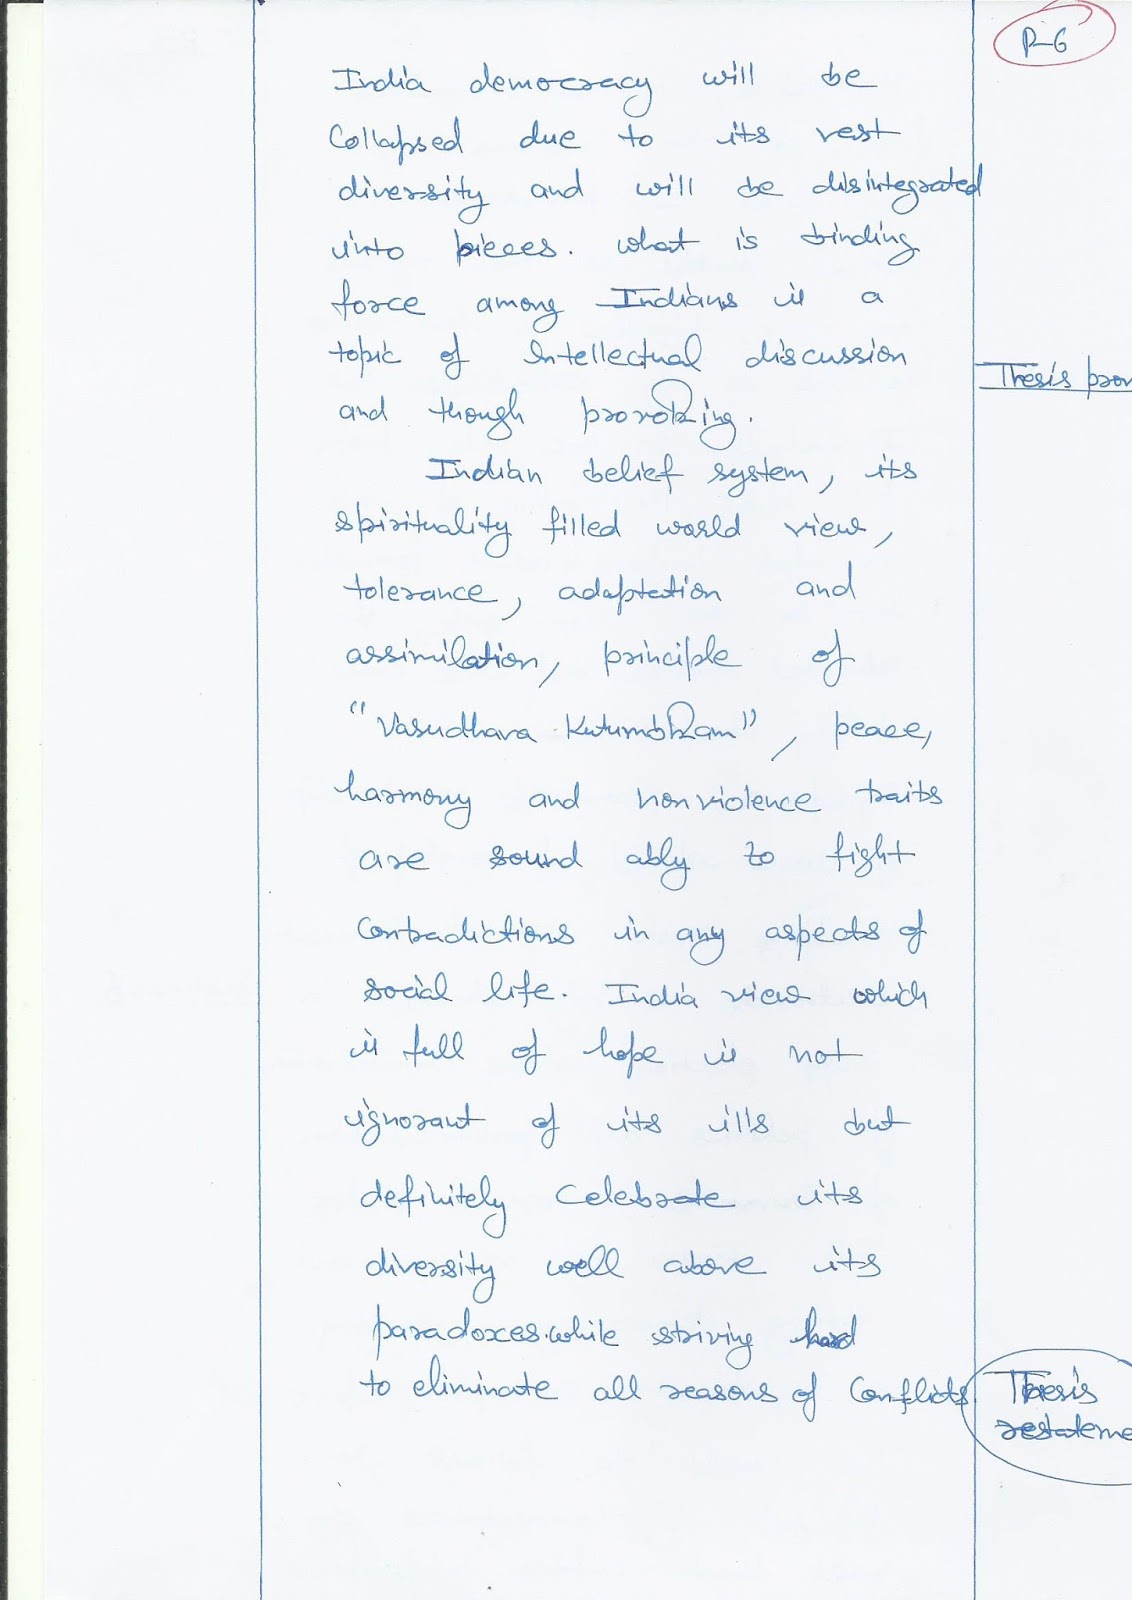 P-6
India democracy will be
Collapsed due to its vast
diversity and will be disintegrated
into pieces. what is binding
force among Indians is a
topic of intellectual discussion
Thesis prov
and though provoking.
Indian belief system, its
spirituality filled world view,
tolerance, adaptation and
assimilation, principle of
"Vasudhara Kutumbkam", peace,
harmony and nonviolence traits
are sound ably to fight
Contradictions in any aspects of
social life. India view which
is full of hope is not
ignorant of its ills but
definitely Celebrate its
diversity well above its
paradoxes. while striving hard
to eliminate all reasons of Conflicts.
Thesis
restateme